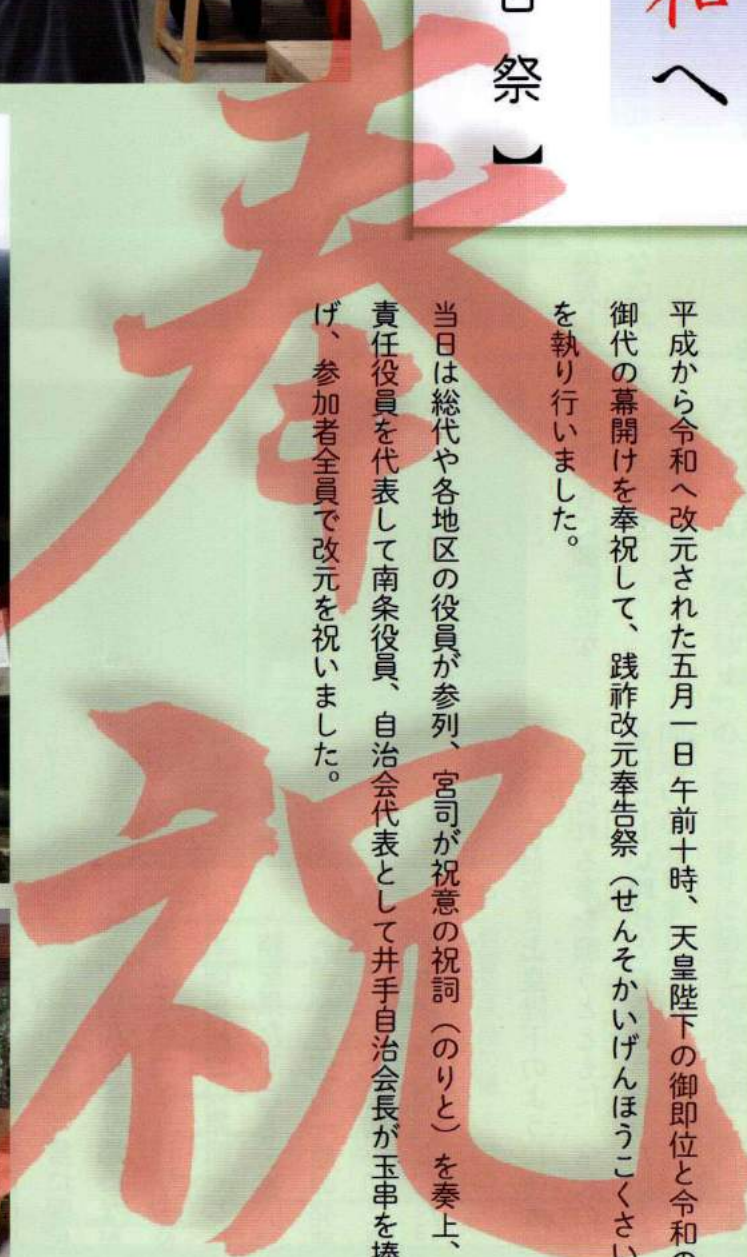 和へ
告祭】
奉祝
平成から令和へ改元された五月一日午前十時、天皇陛下の御即位と令和の
御代の幕開けを奉祝して、践祚改元奉告祭（せんそかいげんほうこくさい
を執り行いました。
当日は総代や各地区の役員が参列、宮司が祝意の祝詞（のりと）を奏上、
責任役員を代表して南条役員、自治会代表として井手自治会長が玉串を捧
げ、参加者全員で改元を祝いました。